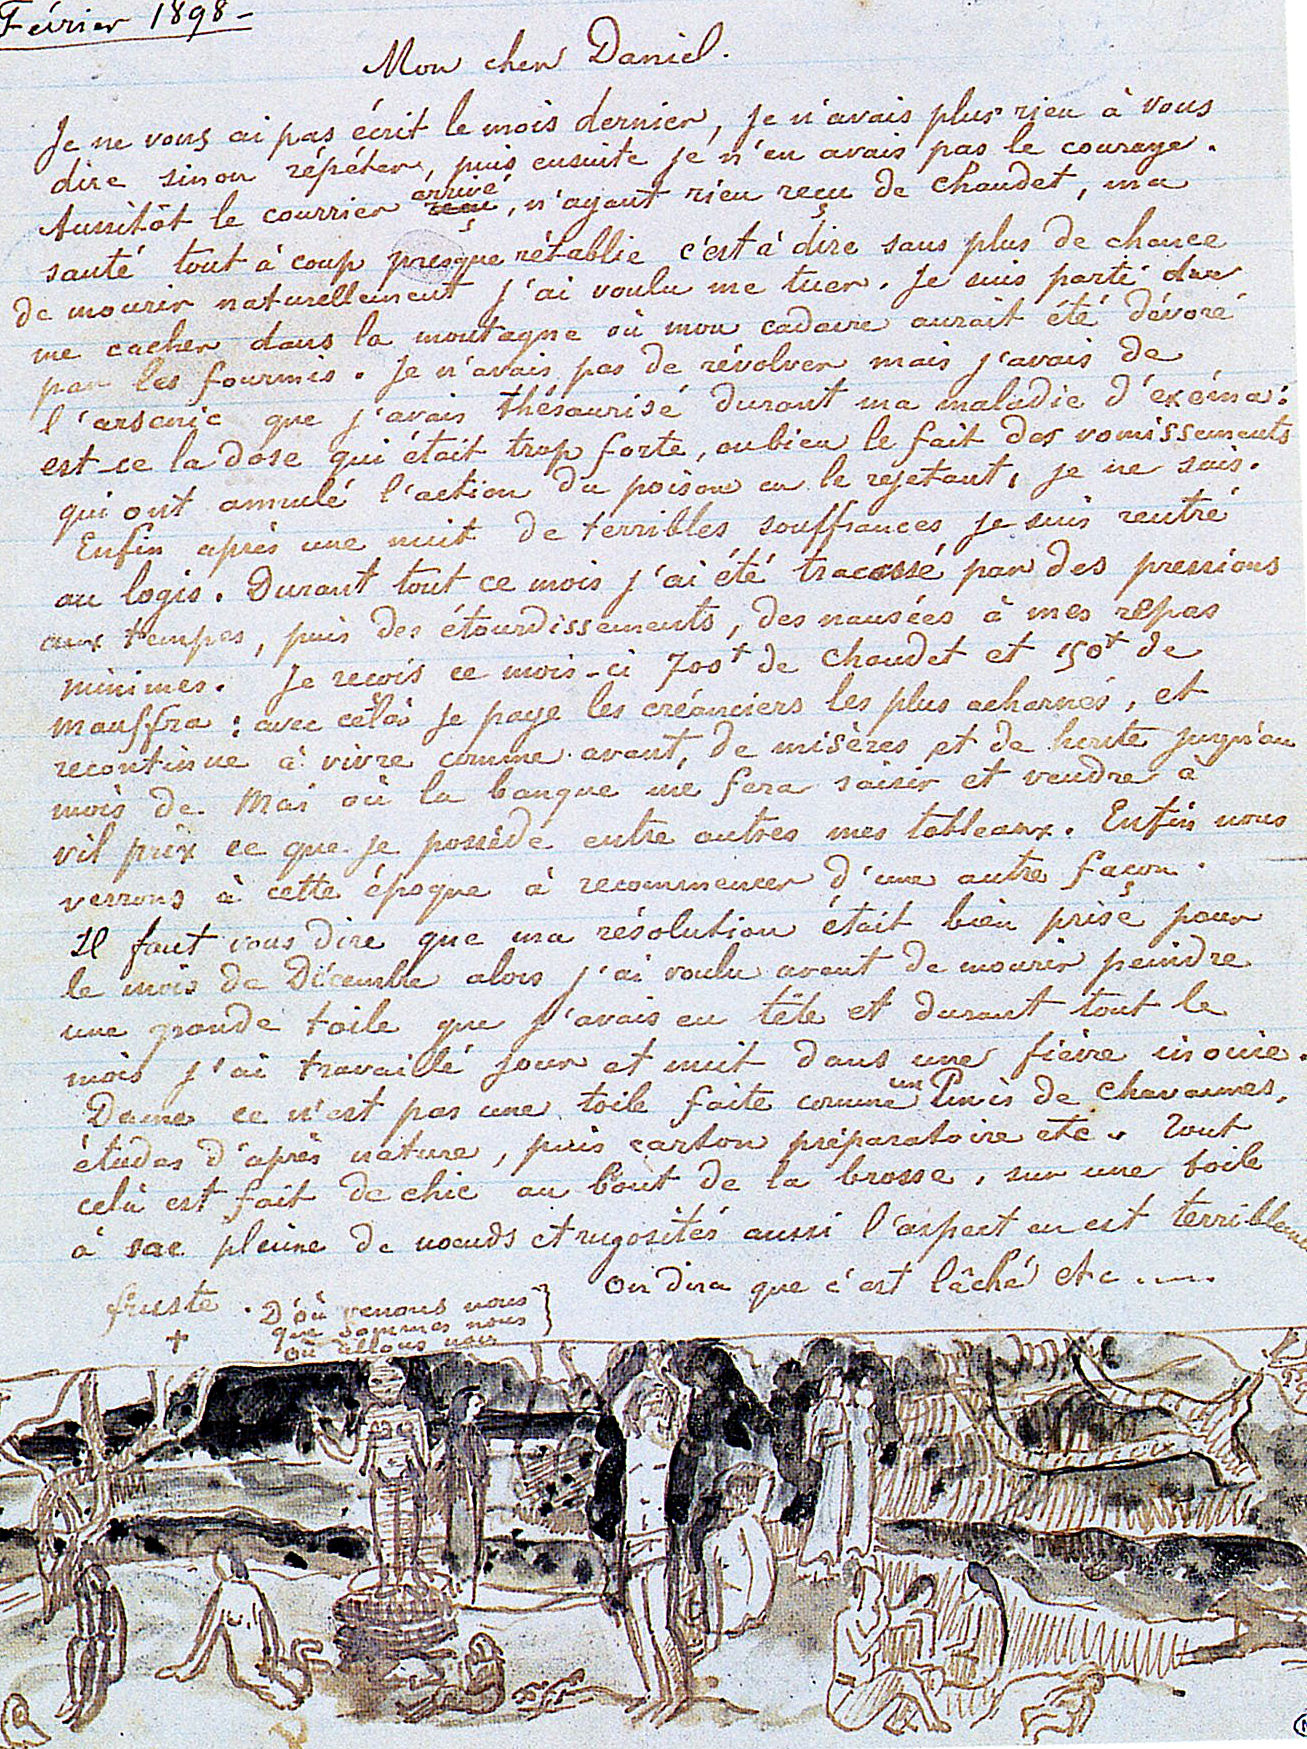 Février 1898 -
Mon cher Daniel.
Je ne vous ai pas écrit le mois dernier, je n'avais plus rien à vous
dire sinon répéter, puis ensuite je n'en avais pas le courage.
Aussitôt le courrier reçu arrivé, n'ayant rien reçu de Chaudet, ma
santé tout à coup presque rétablie c'est à dire sans plus de chance
de mourir naturellement j'ai voulu me tuer. Je suis parti
me cacher dans la montagne où mon cadavre aurait été dévoré
par les fourmis. Je n'avais pas de révolver mais j'avais de
l'arsenic que j'avais thésaurisé durant ma maladie d'exéma:
est-ce la dose qui était trop forte, ou bien le fait des vomissements
qui ont annulé l'action du poison en le rejetant, je ne sais.
Enfin après une nuit de terribles souffrances je suis rentré
au logis. Durant tout ce mois j'ai été tracassé par des pressions
aux tempes, puis des étourdissements, des nausées à mes repas
minimes. Je reçois ce mois-ci 700f de Chaudet et 150f de
Mauffra: avec celà je paye les créanciers les plus acharnés, et
recontinue à vivre comme avant, de misères et de honte jusqu'au
mois de Mai où la banque me fera saisir et vendre à
vil prix ce que je possède entre autres mes tableaux. Enfin nous
verrons à cette époque à recommencer d'une autre façon.
Il faut vous dire que ma résolution était bien prise pour
le mois de Décembre alors j'ai voulu avant de mourir peindre
une grande toile que j'avais en tête et durant tout le
mois j'ai travaillé jour et nuit dans une fièvre inouïe.
Dame ce n'est pas une toile faite comme un Puvis de Chavannes,
études d'après nature, puis carton préparatoire etc. Tout
celà est fait de chic au bout de la brosse, sur une toile
à sac pleine de noeuds et rugosités aussi l'aspect en est
fruste. On dira que c'est lâché etc.....
+
D'où venons nous
que sommes nous
où allons nous